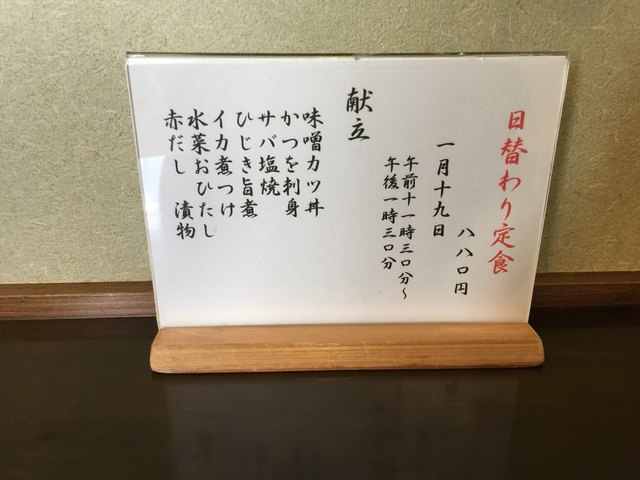 日替わり定食
八八〇円
一月十九日
午前十一時三〇分～
午後一時三〇分
献立
味噌カツ丼
かつを刺身
サバ塩焼
ひじき旨煮
イカ煮つけ
水菜おひたし
赤だし 漬物